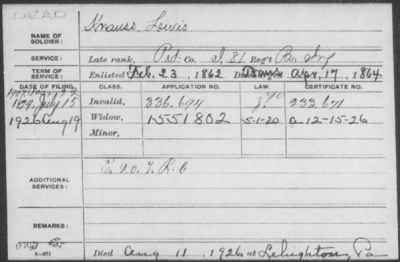 DEAD
NAME OF SOLDIER: Krauss Lewis
SERVICE: Late rank, Pvt Co. I, 81 Reg't Pa Inf
TERM OF SERVICE: Enlisted Feb. 23, 1862 Apr. 17, 1864
DATE OF FILING. CLASS. APPLICATION NO. LAW. CERTIFICATE NO.
1879, July 15 Invalid, 336.694 233 671
1926 Aug 19 Widow, 1551802 5-1-20 a. 12-15-26
Minor,
ADDITIONAL SERVICES:
REMARKS:
Died Aug 11, 1926 at Lehighton, Pa